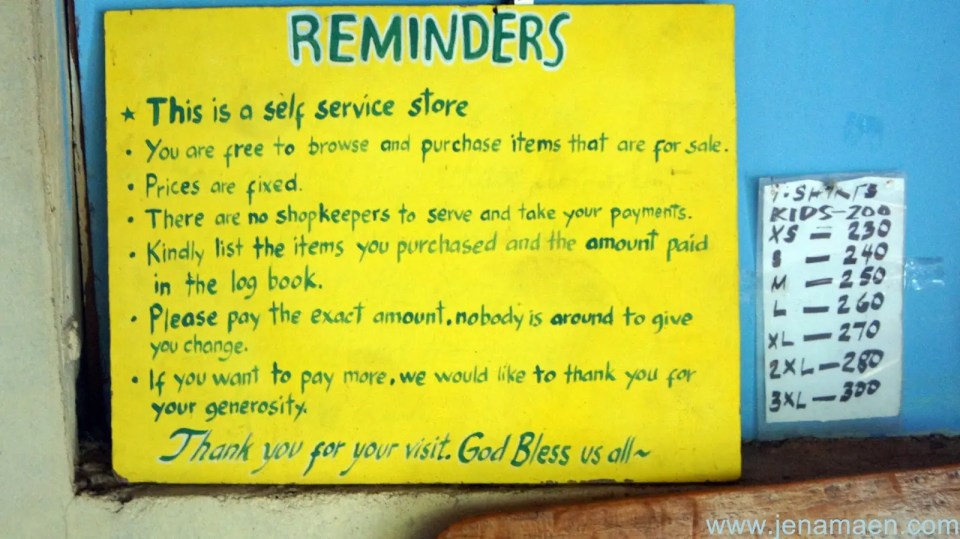 REMINDERS
★ This is a self service store
• You are free to browse and purchase items that are for sale.
• Prices are fixed.
• There are no shopkeepers to serve and take your payments.
• Kindly list the items you purchased and the amount paid
in the log book.
• Please pay the exact amount, nobody is around to give
you change.
• If you want to pay more, we would like to thank you for
your generosity.
Thank you for your visit. God Bless us all~
T-SHIRTS
KIDS-200
XS - 230
S - 240
M - 250
L - 260
XL - 270
2XL - 280
3XL - 300
www.jenamaen.com